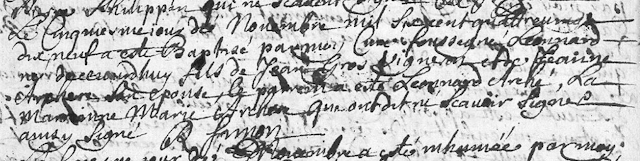 phelippon qui ne scavent
Le cinquiesme jour de Novembre mil six cent quattre vingt
dix neuf a esté Baptisé par moy Curé soussigné Leonnard
fils de Jean Gros vigneron et de Jeanne
Archere son epouse le parrain a esté Leonnard Arché, La
Marrainne Marie Archere qui ont dit ne scavoir signer
ainsy signé
Novembre a esté inhumée par moy